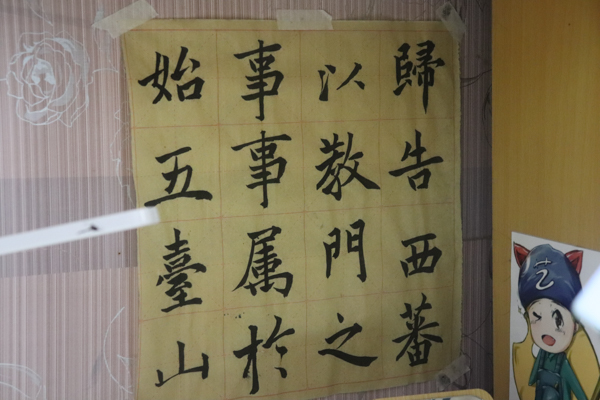 歸告西蕃
以教門之
事事属於
始五臺山